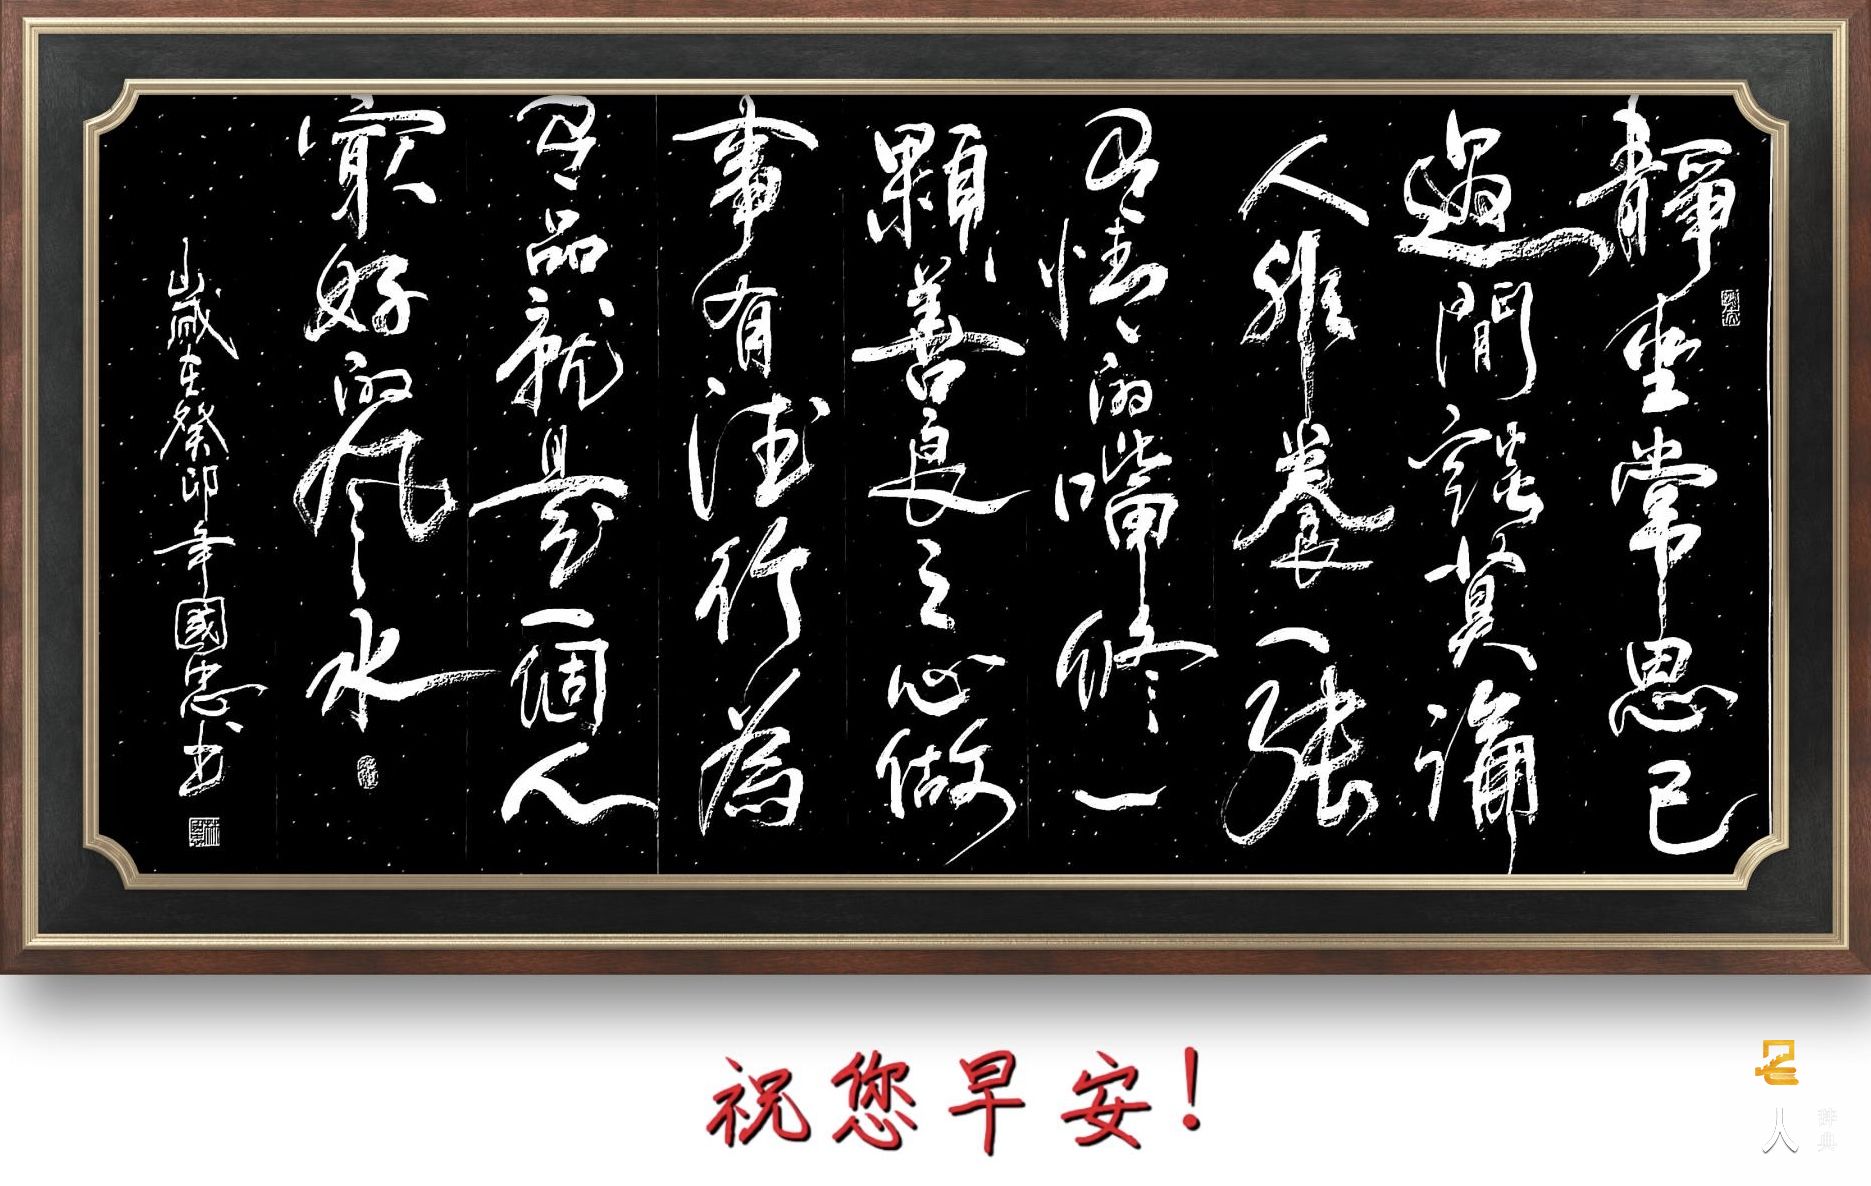 靜坐常思己
過閒談莫論
人非養一張
有情的嘴修一
顆善良之心做
事有德行為
有品就是一個人
最好的风水
歲在癸卯年國忠书
祝您早安!
人
辞典